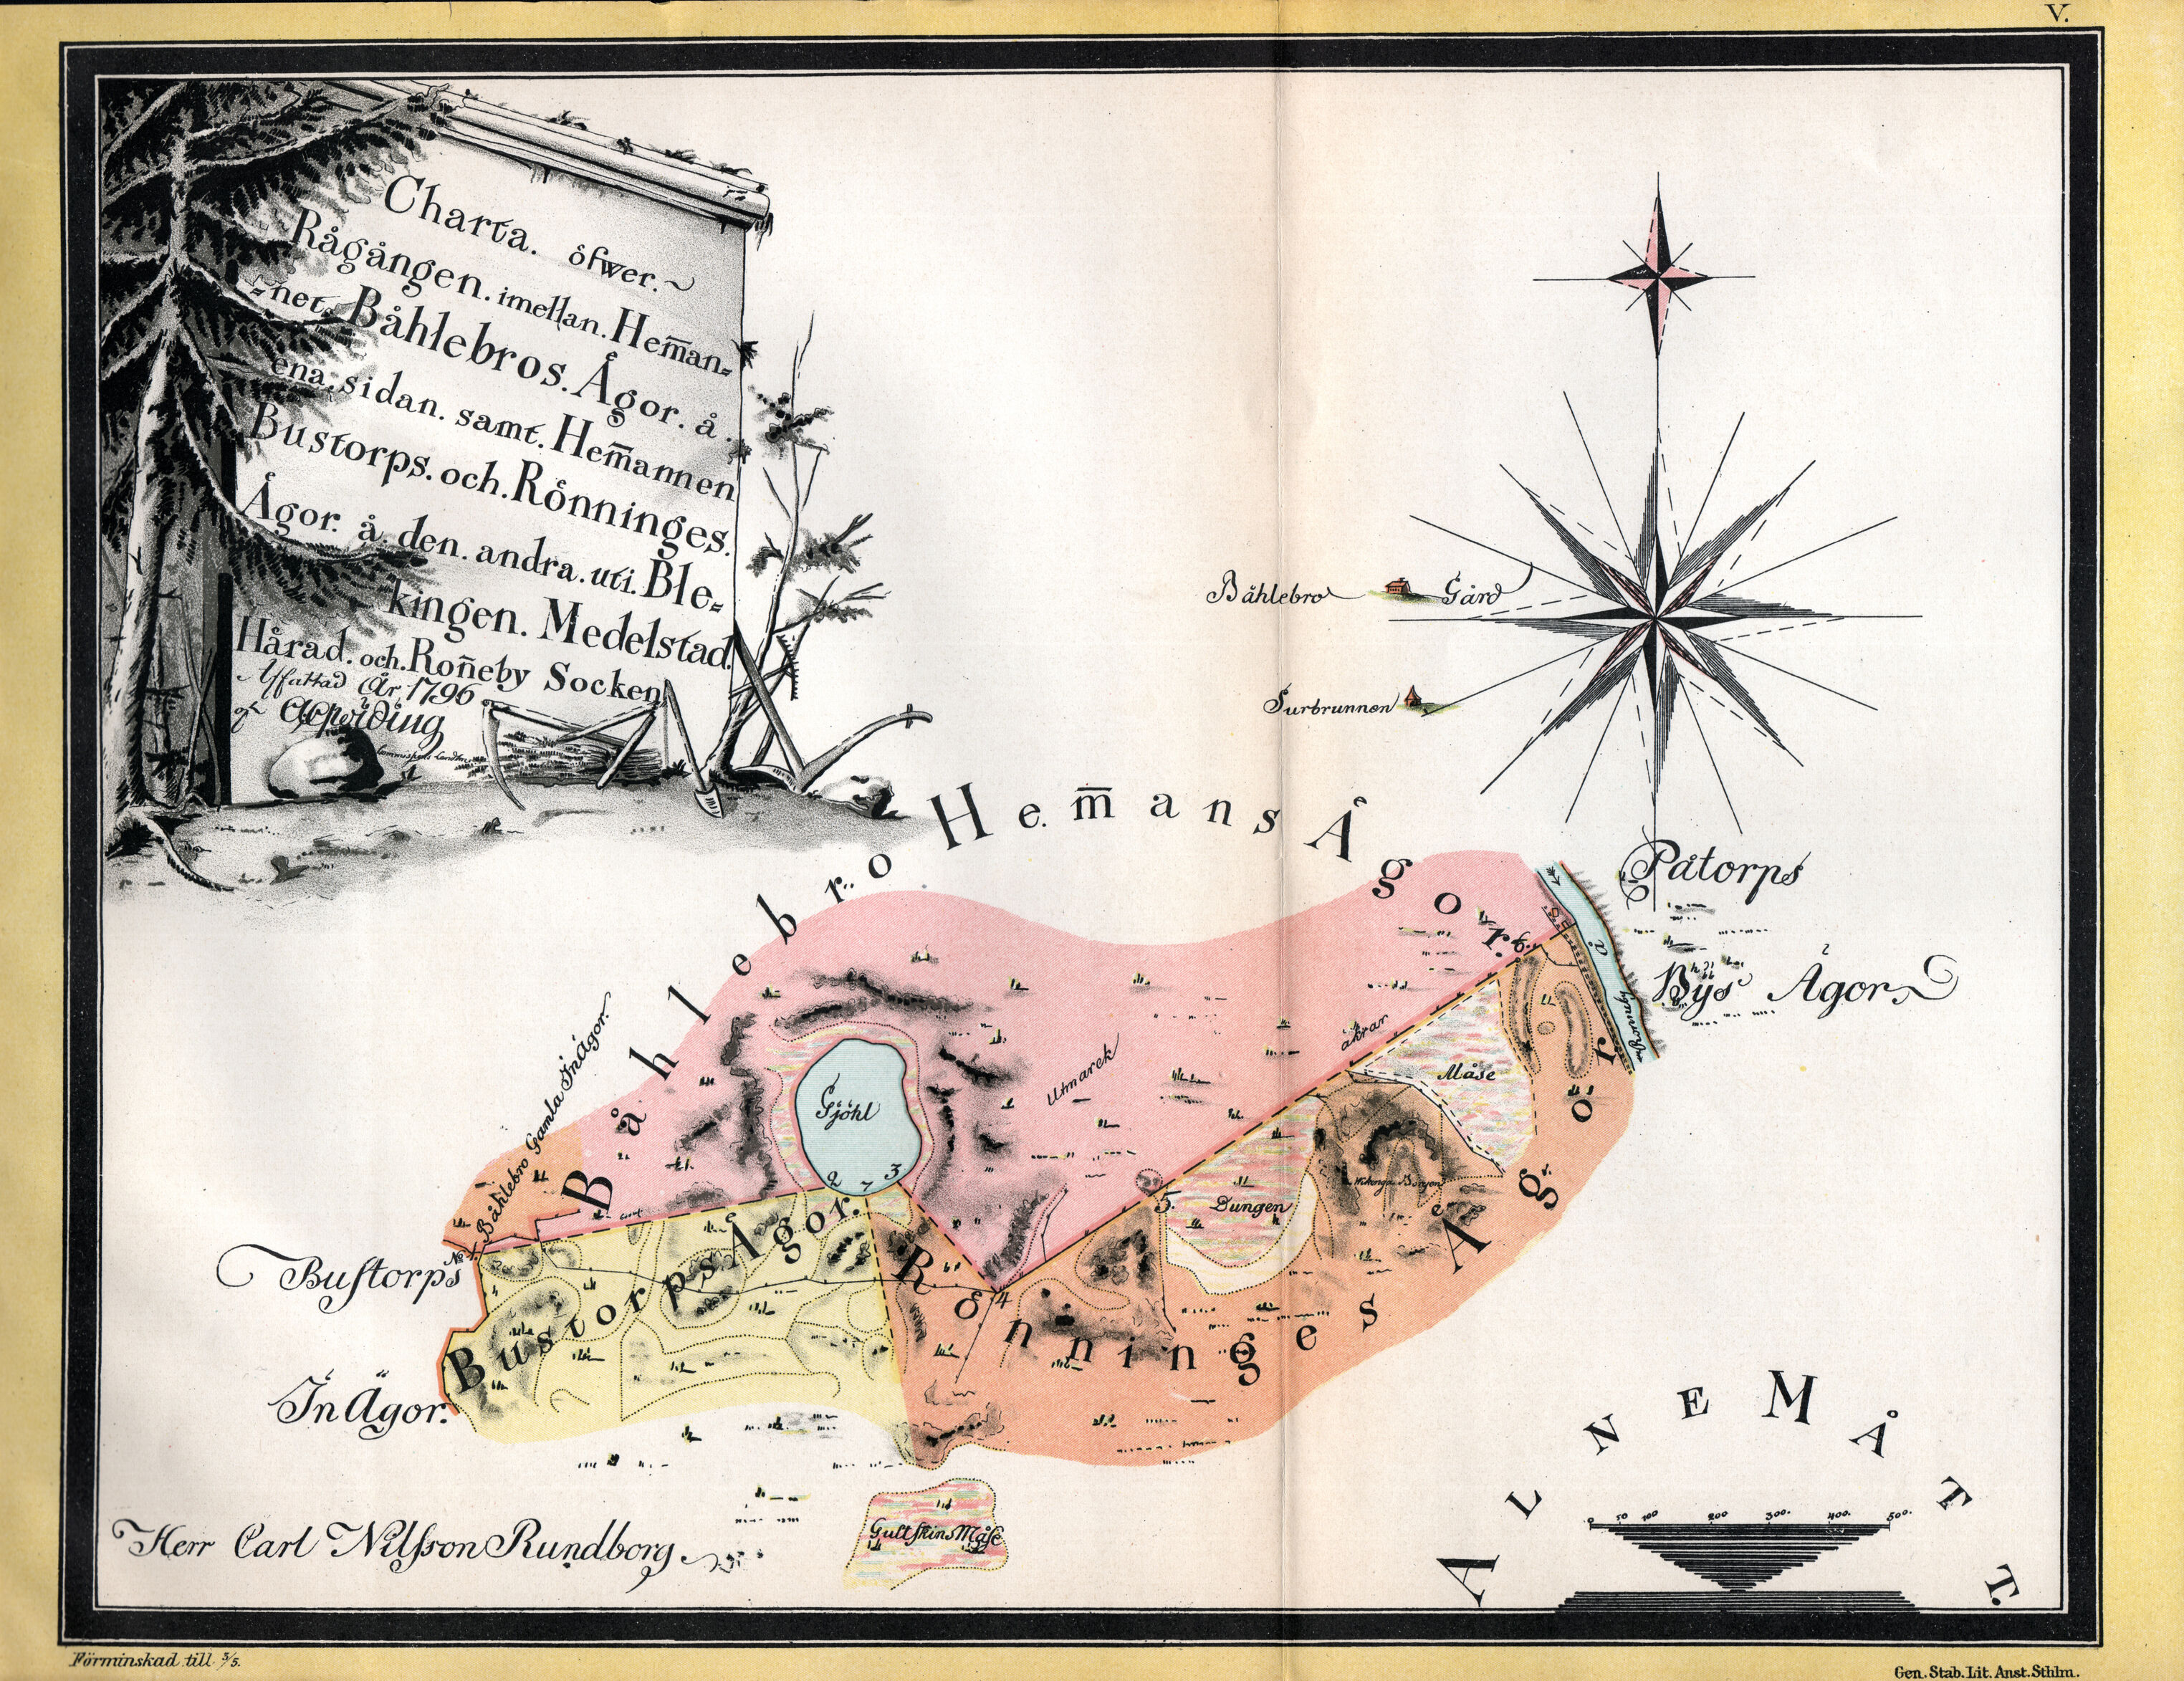 V.
Charta. öfwer.~
Rågången. imellan. Hem̄an-
-net. Båhlebros. Ågor. å.
ena. sidan. samt. Hem̄annen
Bustorps. och. Rönninges.
Ågor. å. den. andra. uti. Ble-
kingen. Medelstad.
Härad. och. Ron̄eby Socken
Affattad År, 1796
af
Båhlebro Gård
Surbrunnen
Båhlebro Hem̄ans Ågor.
Påtorps
Bÿs Ägor
Rönneby å
Båhlebro Gamla InÄgor.
Gjöhl
Utmarck
åkrar
Måse
Dungen
Wikinga Borgen
No 1.
2
7
3
4
5.
6.
Bustorps
InÄgor.
Bustorps Ågor.
Rönninges Ågor
Gullskins Måse
Herr Carl Nilsson Rundborg
ALNEMÅTT
0 50 100 200 300. 400. 500.
Förminskad till 3/5.
Gen. Stab. Lit. Anst. Sthlm.